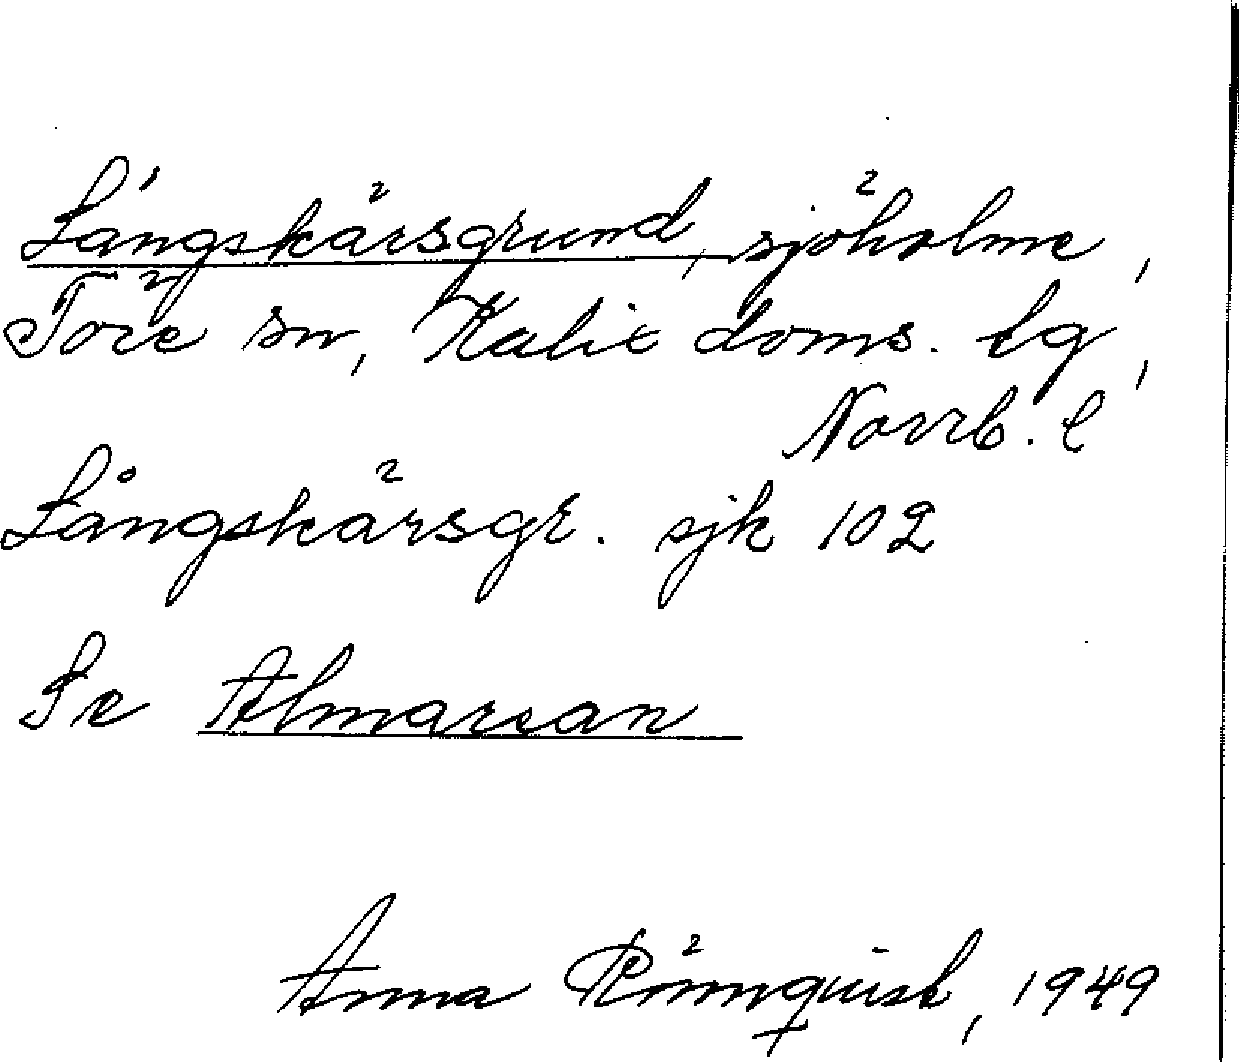 Långskärsgrund, sjöholme,
Töre sn, Kalix doms. lg,
Norrb. l
Långskärsgr. sjk 102
Se Almarsan
Anna Rönnquist, 1949